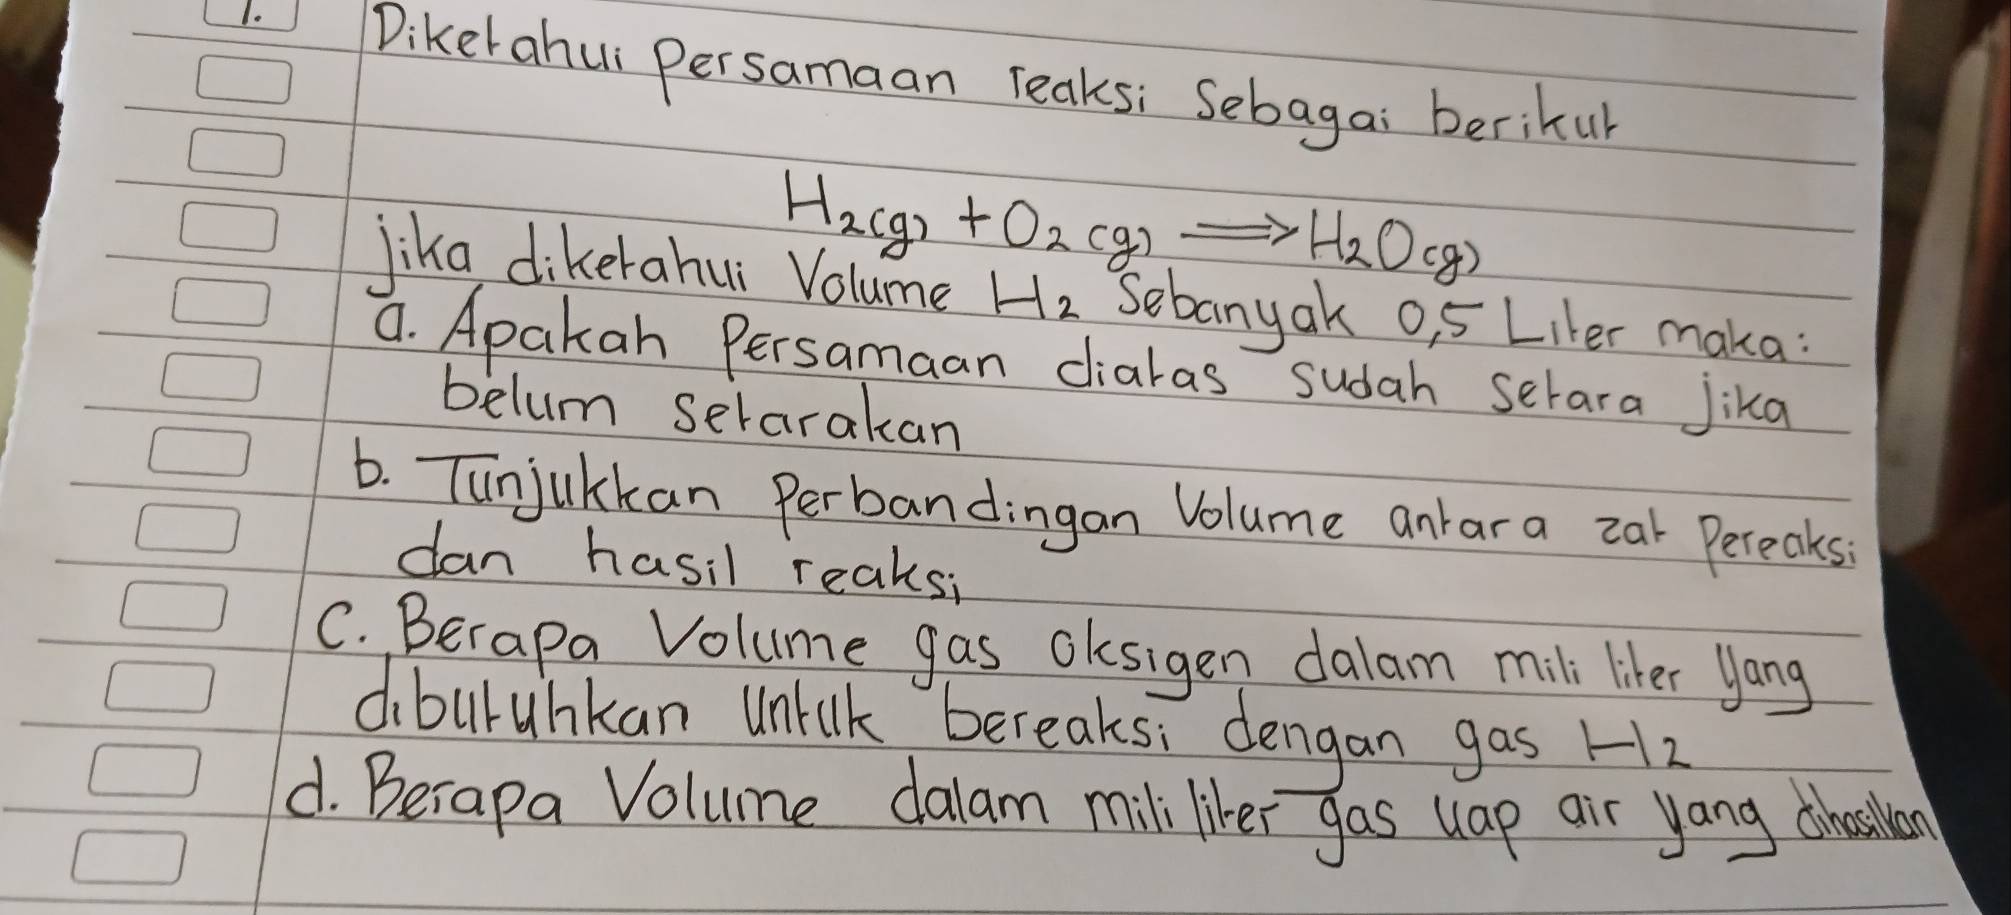 1. Diketahui Persamaan reaksi Sebagai berikut
H₂(g) + O₂(g) ⟹ H₂O(g)
jika diketahui Volume H₂ Sebanyak 0,5 Liter maka:
a. Apakah Persamaan diatas sudah setara jika
belum setarakan
b. Tunjukkan Perbandingan Volume antara zat Pereaksi
dan hasil reaksi
C. Berapa Volume gas oksigen dalam mili liter yang
dibutuhkan untuk bereaksi dengan gas H₂
d. Berapa Volume dalam mili liter gas uap air yang dihasilkan